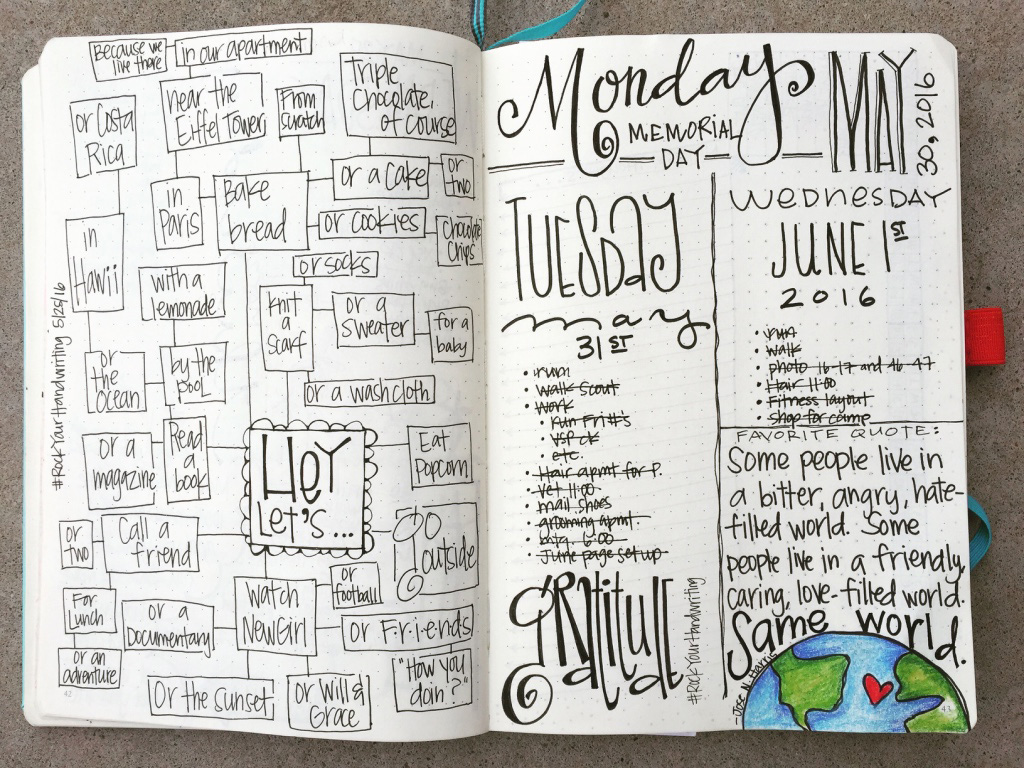 Because we
live there
in our apartment
or Costa
Rica
near the
Eiffel Tower
From
Scratch
Triple
Chocolate,
of course
in
Paris
Bake
bread
or a cake
or
two
or cookies
Chocolate
Chips
in
Hawii
with a
lemonade
or socks
Knit
a
scarf
or a
sweater
for a
baby
or
the
ocean
by the
pool
or a washcloth
or a
magazine
Read
a
book
Hey
Let's...
Eat
Popcorn
or
two
Call a
friend
Go
outside
For
Lunch
or a
Documentary
watch
NewGirl
or
football
or F.r.i.e.n.d.s
or an
adventure
Or the sunset
or Will &
Grace
"How you
doin'?"
#RockYourHandwriting 5/25/16
42
Monday
MEMORIAL
DAY
MAY
30, 2016
TUESDAY
may
31ST
• run
• walk Scout
• work
• run Fri #'s
• VSP ck
• etc.
• Hair apmt for P.
• vet 11:00
• mail shoes
• grooming apmt.
• 6:00
• June page set up
Gratitude
#RockYourHandwriting
Wednesday
JUNE 1ST
2016
• run
• walk
• photo 16-17 and 46-47
• Hair 11:00
• Fitness layout
• Shop for camp
FAVORITE QUOTE:
Some people live in
a bitter, angry, hate-
filled world. Some
people live in a friendly,
caring, love-filled world.
Same world.
N. Harris
43